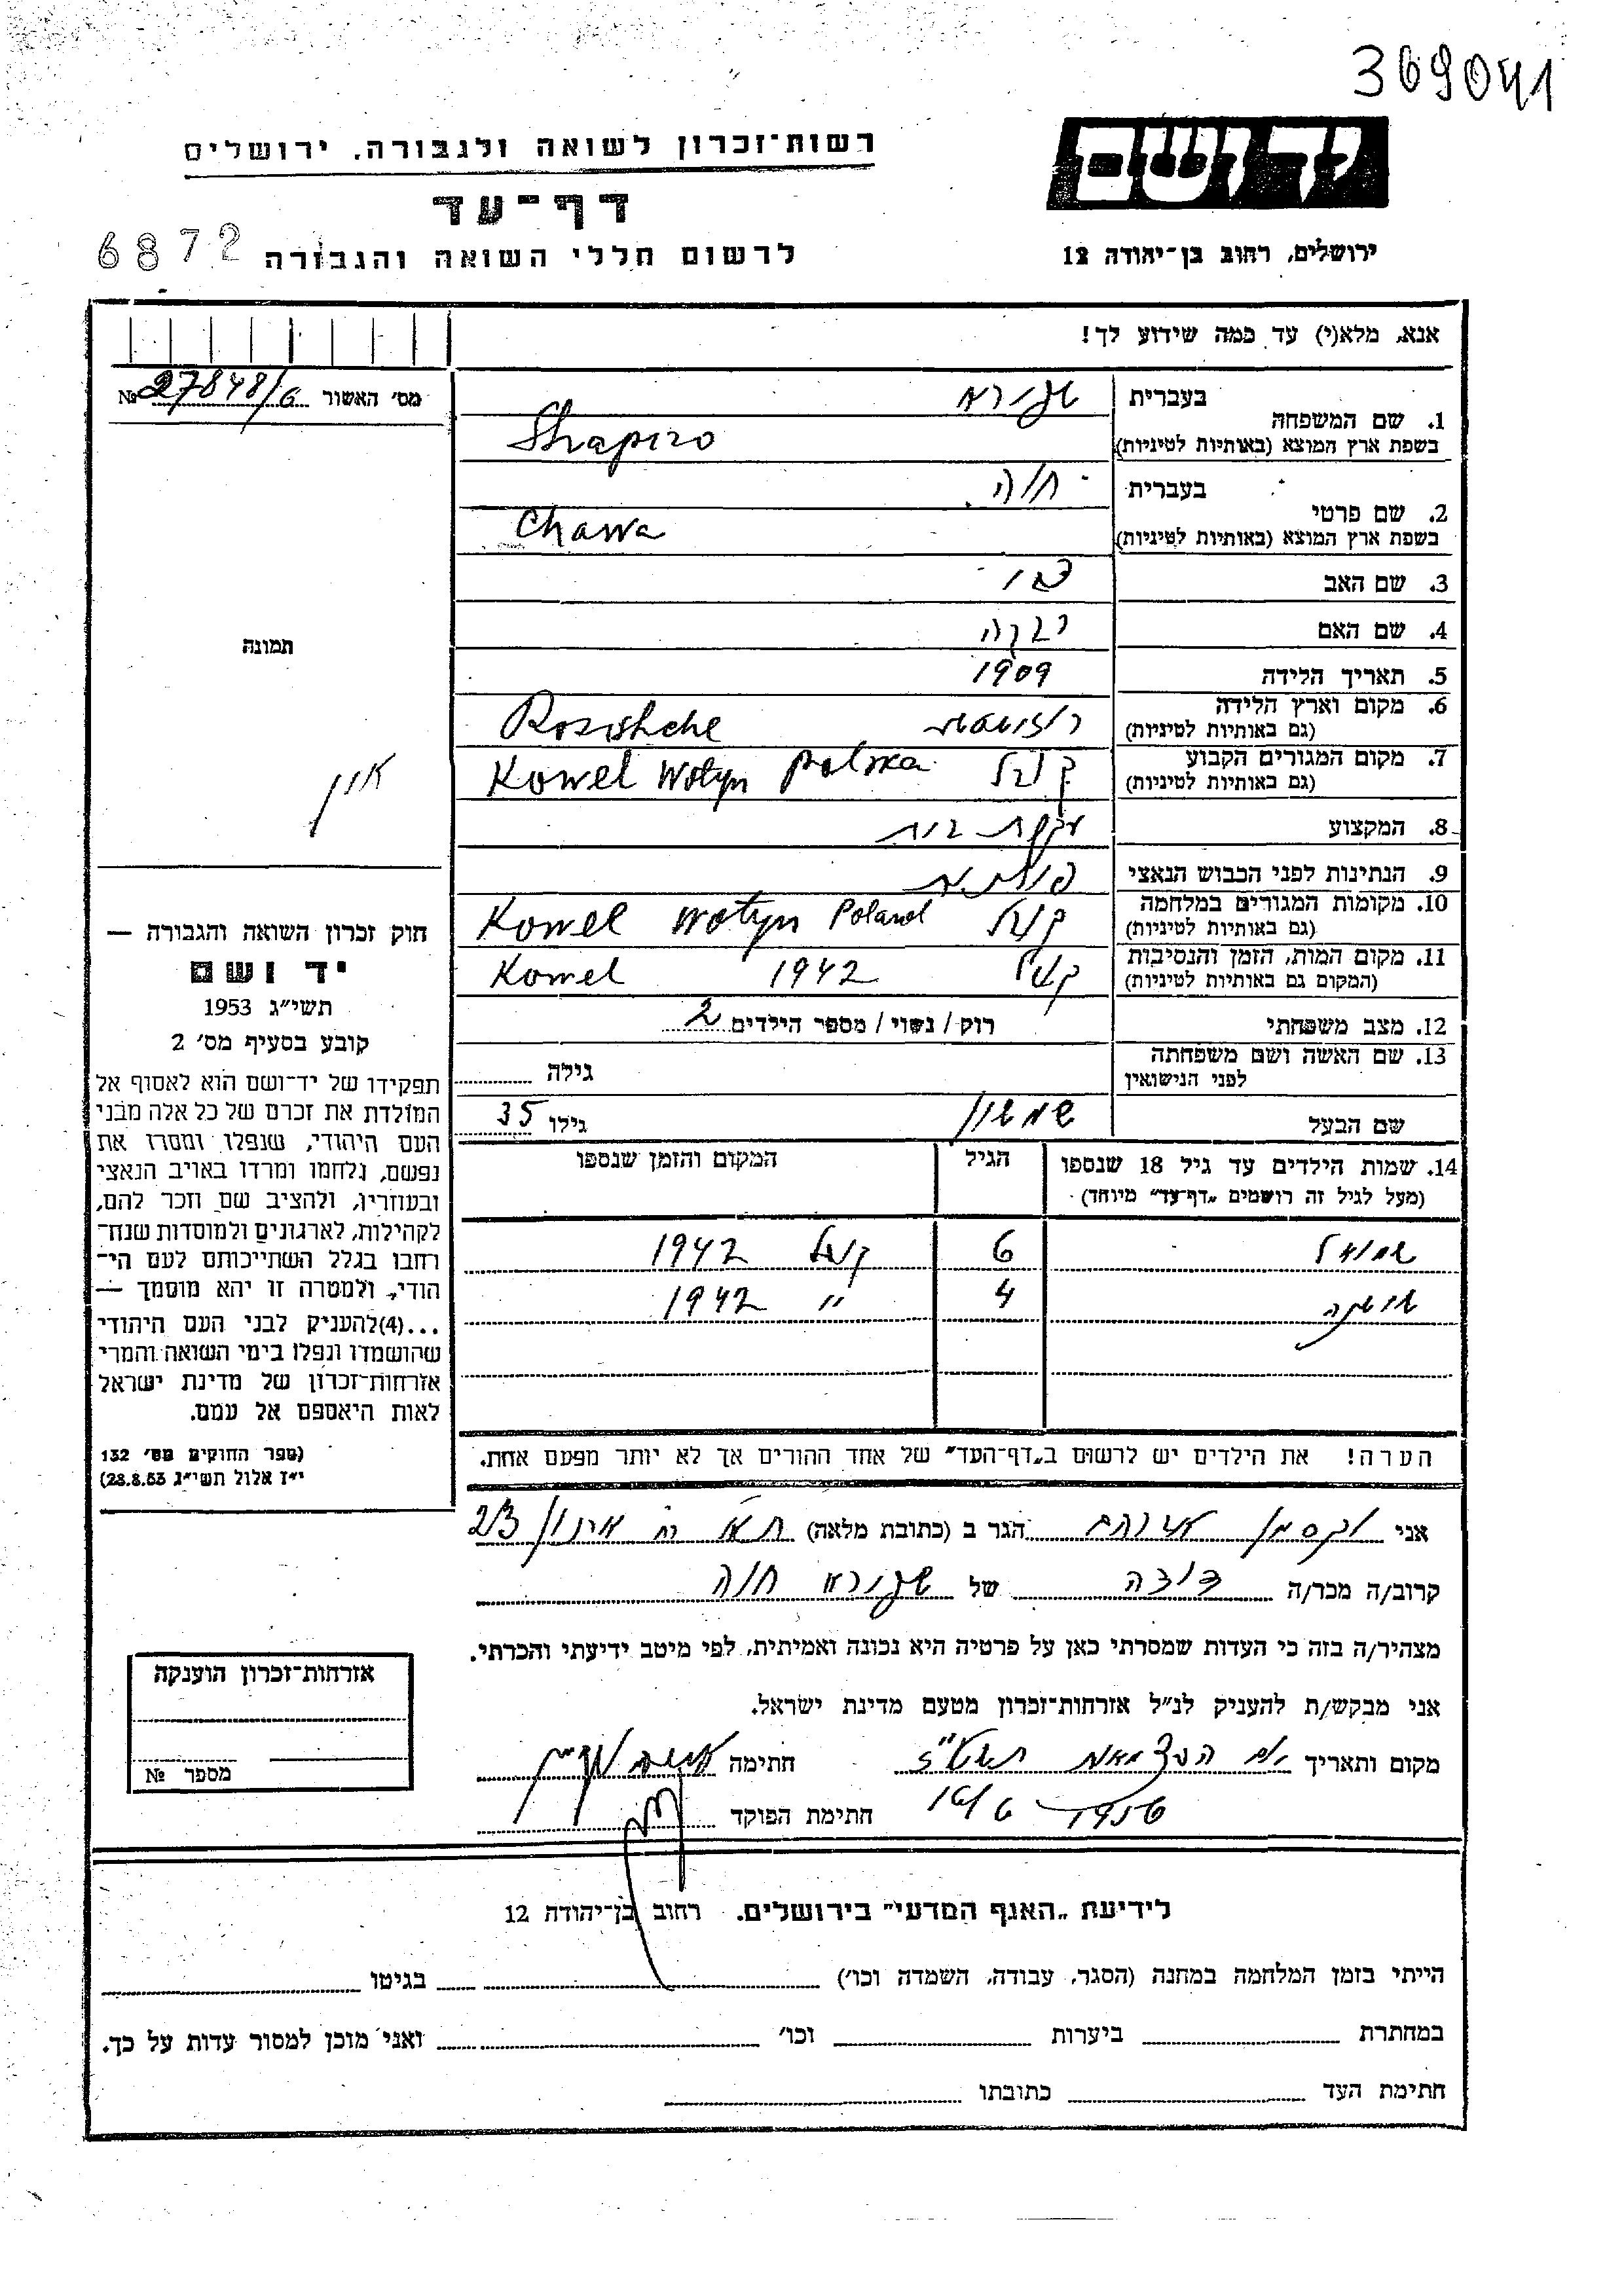 369041
יד ושם
רשות־זכרון לשואה ולגבורה, ירושלים
דף־עד
לרשום חללי השואה והגבורה
6872
ירושלים, רחוב בן־יהודה 12
אנא, מלא(י) עד כמה שידוע לך!
מס' האשור 27848/6 №
1. שם המשפחה
בעברית שפירא
בשפת ארץ המוצא (באותיות לטיניות) Shapiro
2. שם פרטי
בעברית חוה
בשפת ארץ המוצא (באותיות לטיניות) Chawa
3. שם האב
4. שם האם רבקה
5. תאריך הלידה 1909
6. מקום וארץ הלידה
(גם באותיות לטיניות) Rosishche
7. מקום המגורים הקבוע קובל Kowel Wolyn Polska
(גם באותיות לטיניות)
8. המקצוע עקרת בית
9. הנתינות לפני הכבוש הנאצי פולנית
10. מקומות המגורים במלחמה קובל Kowel Wolyn Poland
(גם באותיות לטיניות)
11. מקום המות, הזמן והנסיבות קובל 1942 Kowel
(המקום גם באותיות לטיניות)
12. מצב משפחתי רוק / נשוי / מספר הילדים 2
13. שם האשה ושם משפחתה
לפני הנישואין גילה
שם הבעל שמשון גילו 35
14. שמות הילדים עד גיל 18 שנספו הגיל המקום והזמן שנספו
(מעל לגיל זה רושמים "דף־עד" מיוחד)
שמואל 6 קובל 1942
שושנה 4 " 1942
הערה! את הילדים יש לרשום ב"דף־העד" של אחד ההורים אך לא יותר מפעם אחת.
תמונה
אין
חוק זכרון השואה והגבורה —
יד ושם
תשי"ג 1953
קובע בסעיף מס' 2
תפקידו של יד־ושם הוא לאסוף אל
המולדת את זכרם של כל אלה מבני
העם היהודי, שנפלו ומסרו את
נפשם, נלחמו ומרדו באויב הנאצי
ובעוזריו, ולהציב שם וזכר להם,
לקהילות, לארגונים ולמוסדות שנח־
רחבו בגלל השתייכותם לעם הי־
הודי, ולמטרה זו יהא מוסמך —
...(4)להעניק לבני העם היהודי
שהושמדו ונפלו בימי השואה והמרי
אזרחות־זכרון של מדינת ישראל
לאות היאספם אל עמם.
(ספר החוקים מס' 132
י"ז אלול תשי"ג 28.8.53)
אני וקסמן הגר ב (כתובת מלאה) 2/3
קרוב/ה מכר/ה דודה של שפירא חוה
מצהיר/ה בזה כי העדות שמסרתי כאן על פרטיה היא נכונה ואמיתית, לפי מיטב ידיעתי והכרתי.
אני מבקש/ת להעניק לנ"ל אזרחות־זכרון מטעם מדינת ישראל.
מקום ותאריך יום העצמאות חתימה
חתימת הפוקד
אזרחות־זכרון הוענקה
מספר №
לידיעת "האגף המדעי" בירושלים, רחוב בן־יהודה 12
הייתי בזמן המלחמה במחנה (הסגר, עבודה, השמדה וכו') בגיטו
במחתרת ביערות וכו' ואני מוכן למסור עדות על כך.
חתימת העד כתובתו